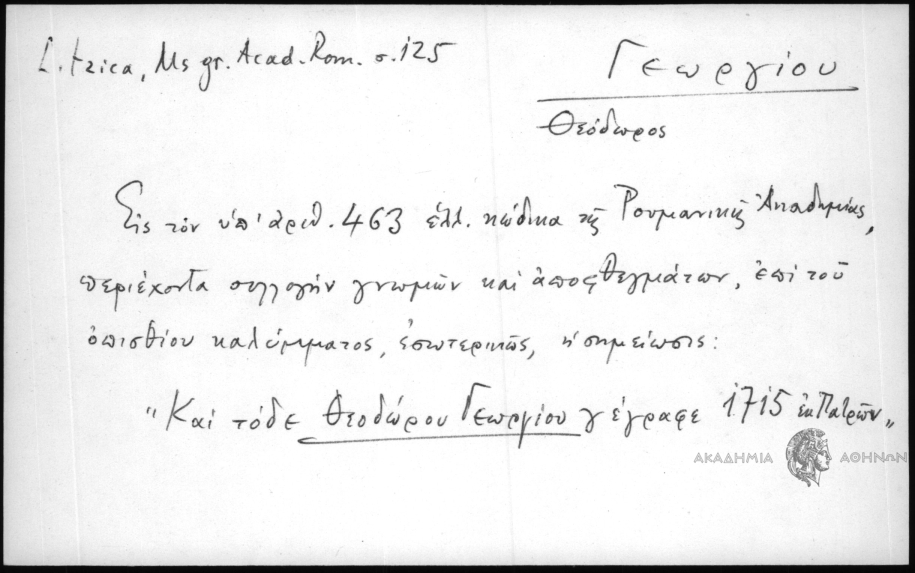 L. Litzica, Ms gr. Acad. Rom. σ. 125
Γεωργίου
Θεόδωρος
Εἰς τὸν ὑπ' ἀριθ. 463 ἑλλ. κώδικα τῆς Ρουμανικῆς Ἀκαδημίας,
περιέχοντα συλλογὴν γνωμῶν καὶ ἀποφθεγμάτων, ἐπὶ τοῦ
ὀπισθίου καλύμματος, ἐσωτερικῶς, ἡ σημείωσις:
"Καὶ τόδε Θεοδώρου Γεωργίου γέγραφε 1715 ἐκ Πατρῶν"
ΑΚΑΔΗΜΙΑ ΑΘΗΝΩΝ